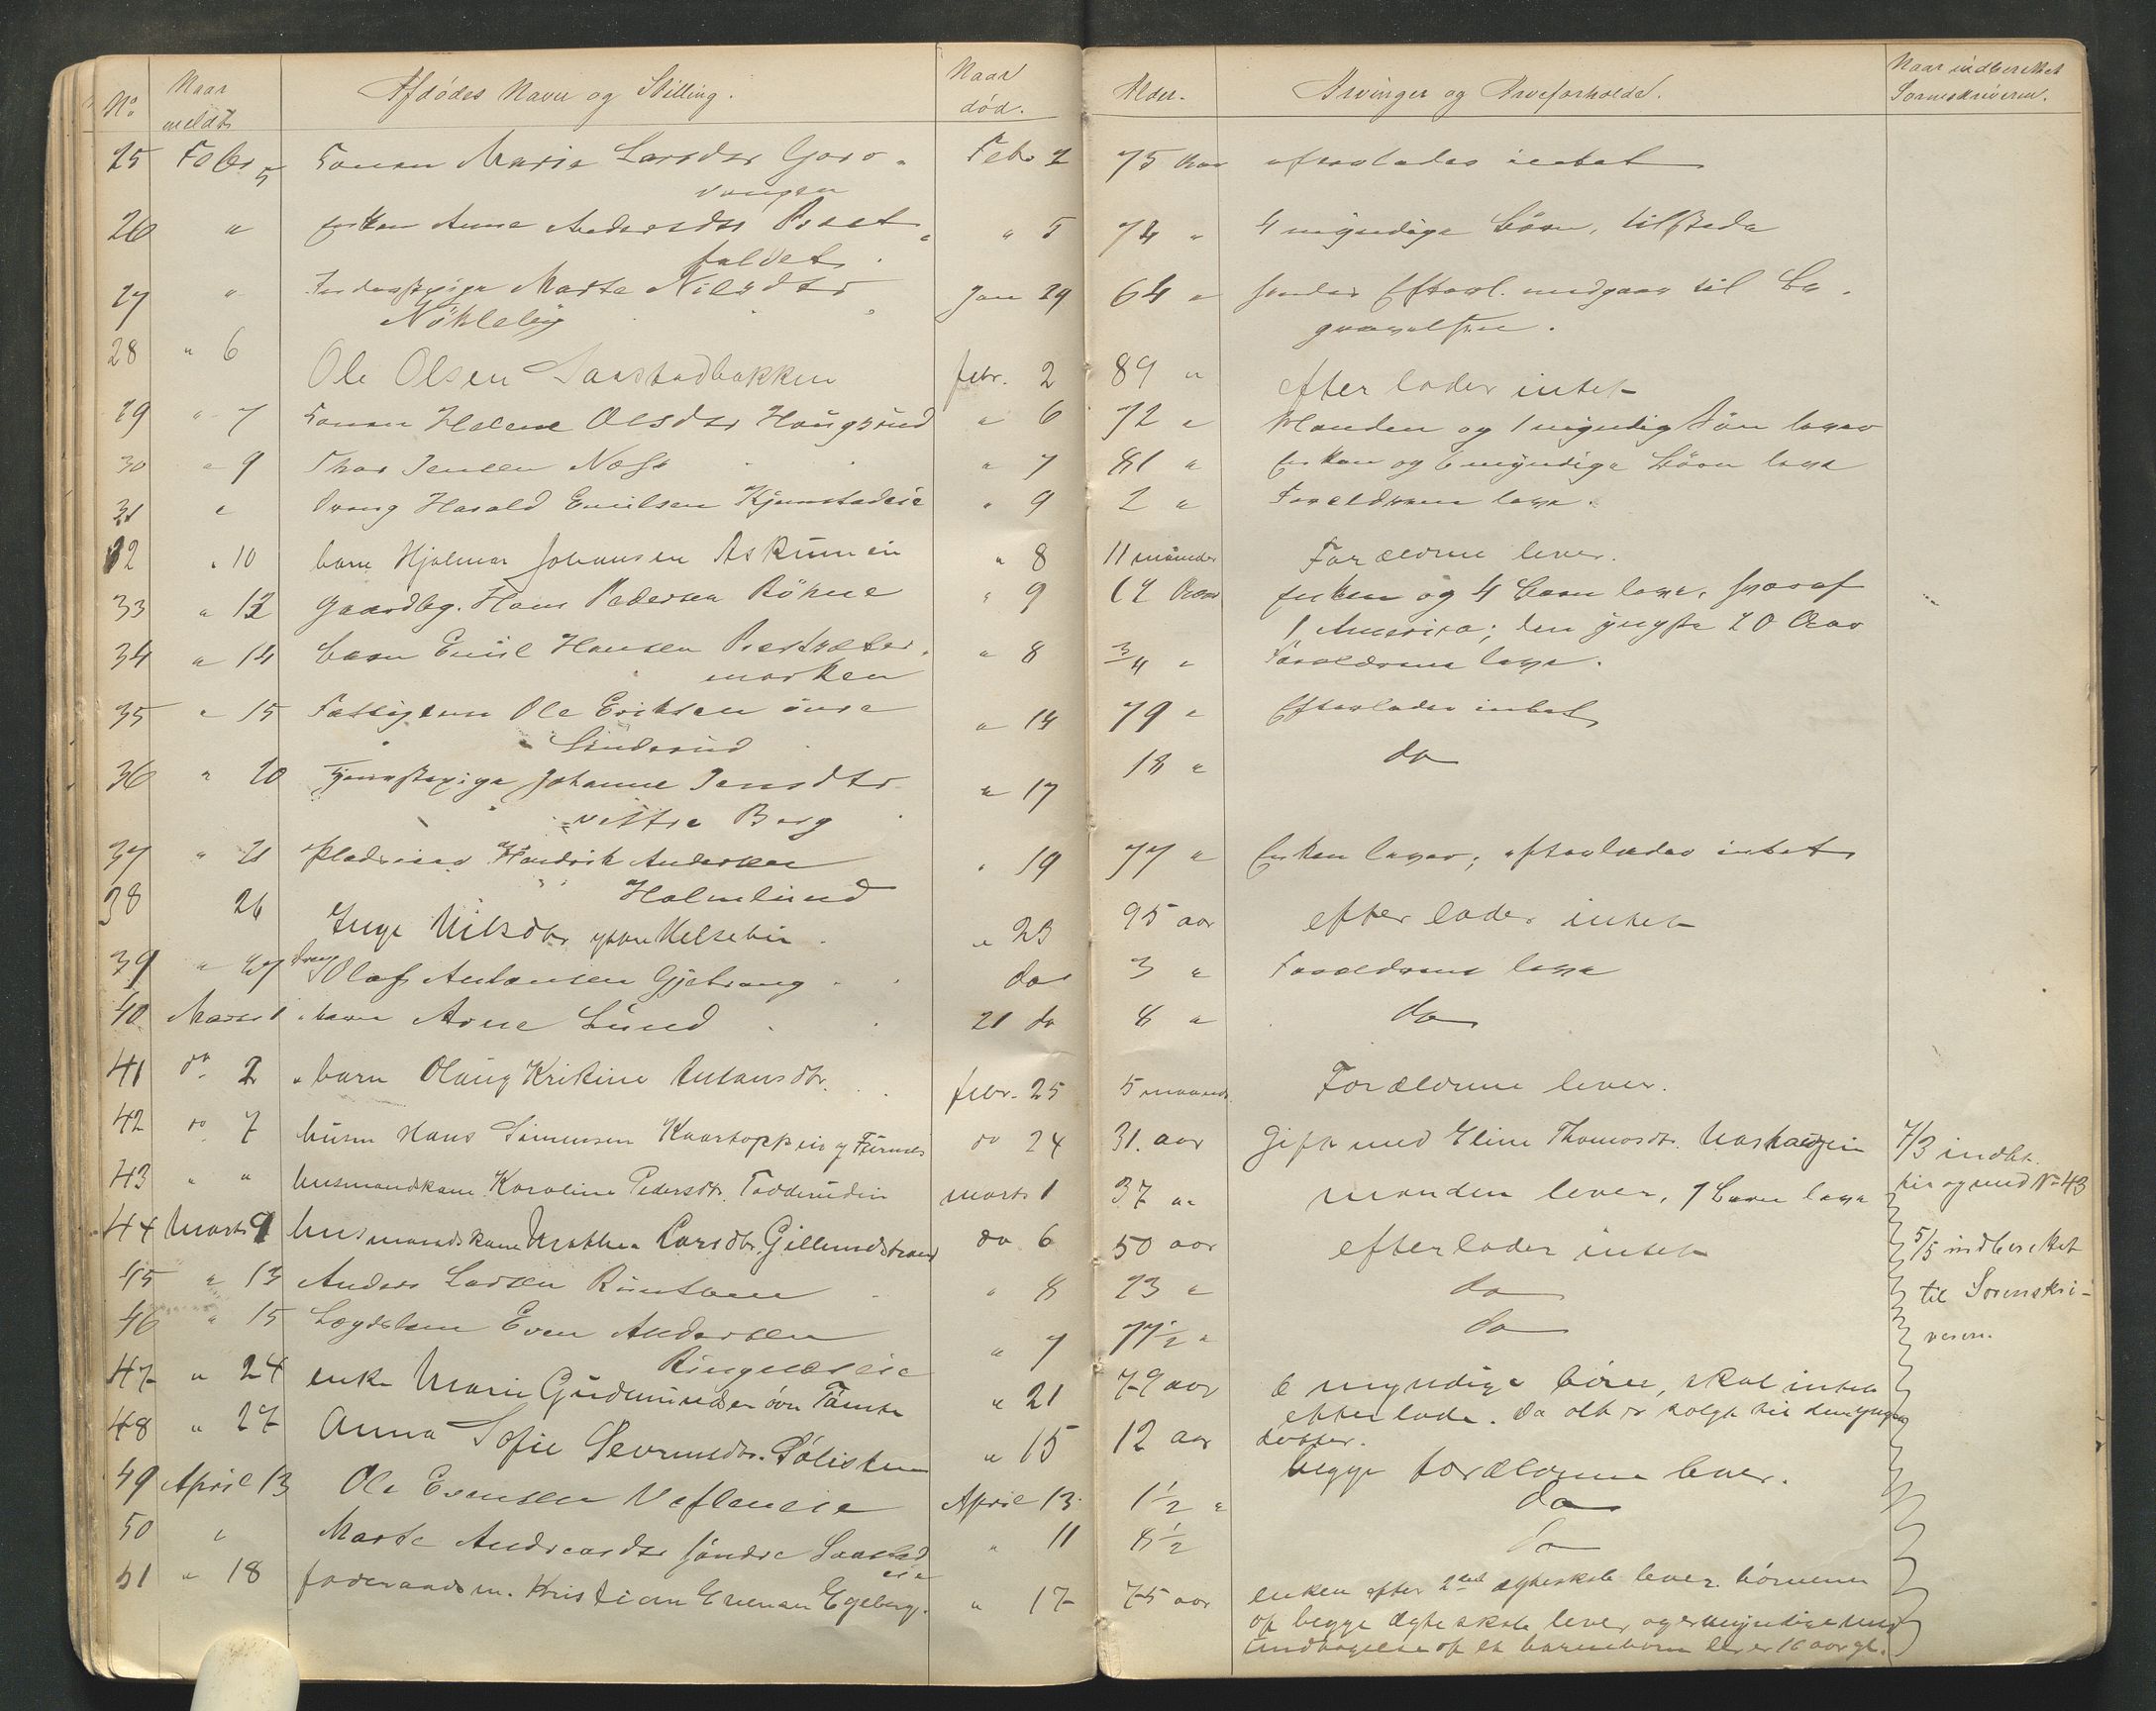 No. Naar meldt Afdödes Navn og Stilling. Naar död. Alder. Arvinger og Arveforholde. Naar indberettet Sorenskriveren.
25 Febr 5 Konen Maria Larsdtr Goro- Febr 2 75 Aar efterlader intet
vangen
26 " Enken Anne Andersdtr " 5 74 " 4 myndige Börn, tilstede
faldet
27 " Marte Nilsdtr Jan 29 64 " Efterl. medgaar til Be-
Nökleby gravelsen.
28 " 6 Ole Olsen Saastadbakken febr. 2 89 " efterlader intet
29 " 7 Konen Helene Olsdtr Haugsrud " 6 72 " Manden og 1 myndig Sön lever
30 " 9 Thor Jensen Næss " 7 81 " Enken og 6 myndige Börn leve
31 " Dreng Harald Emilsen Kjonstadeie " 9 2 " Forældrene leve.
32 " 10 barn Hjalmar Johansen Askimein " 8 11 maaneder Forældrene lever.
33 " 12 Gaardbr. Hans Pedersen Böhne " 9 62 Aar Enken og 4 Börn leve, hvoraf
1 Amerika; den yngste 20 Aar
34 " 14 barn Emil Hansen " 8 3/4 " Forældrene leve.
marken
35 " 15 Fattiglem Ole Eriksen övre " 14 79 " Efterlader intet
Linderud
36 " 20 Tjenestepige Johanne Jensdtr " 17 18 " do
vestre Berg
37 " 21 Pladseier Hendrik Andersen " 19 77 " Enken lever; efterlader intet
Holmlund
38 26 Inge Nilsdtr " 23 95 aar efterlader intet
39 " 27 Dreng Olaf Antonsen Gjetvang do 3 " Forældrene leve
40 Marts 1 barn Arne Lund 21 do 8 " do
41 do 2 " barn Olaug Kristine Antonsdtr. febr. 25 5 maaned. Forældrene lever.
42 do 7 husm Hans Simensen do 24 31. aar Gift med Eline Thomasdtr. 7/3 indbr.
43 " " husmandskone Karoline Pedersdtr. Fodderudein marts 1 37 " manden lever, 7 Börn leve her og med No 43
44 Marts 9 husmandskone Mathea Larsdtr. Gillundstrand do 6 50 aar efterlader intet 5/5 indberettet
45 " 13 Anders Larsen Rustom " 8 23 " do til Sorenskri-
46 " 15 Lægdslem Even Andersen " 7 77 1/2 " do veren.
Ringnæseie
47 " 24 enke Marie Gudmundsen övre Tömte " 21 79 aar 6 myndige börn, skal intet
efterlade. Da alt er solgt til den yngste
datter.
48 " 27 Anna Sofie Severinsdtr. Sölisten " 15 12 aar begge forældrene lever.
49 April 13 Ole Evensen Vefleneie April 13 1 1/2 " do
50 " Marte Andreasdtr söndre Saastad " 11 8 1/2 do
eie
51 " 18 föderaadsm. Kristian Evensen Egeberg. " 17 75 aar enken efter 2det ægteskab lever. börnene
af begge ægteskab lever og er myndige med
undtagelse af et barnebarn der er 16 aar gl.